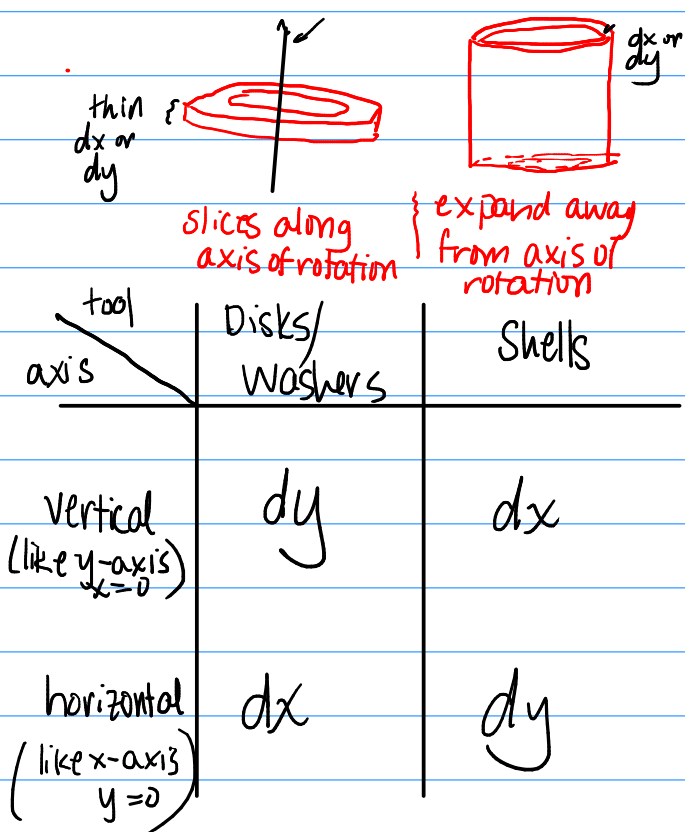 thin
dx or
dy
dx or
dy
slices along
axis of rotation
expand away
from axis of
rotation
tool
axis
Disks/
Washers
Shells
vertical
(like y-axis)
x=0
dy
dx
horizontal
(like x-axis
y=0)
dx
dy